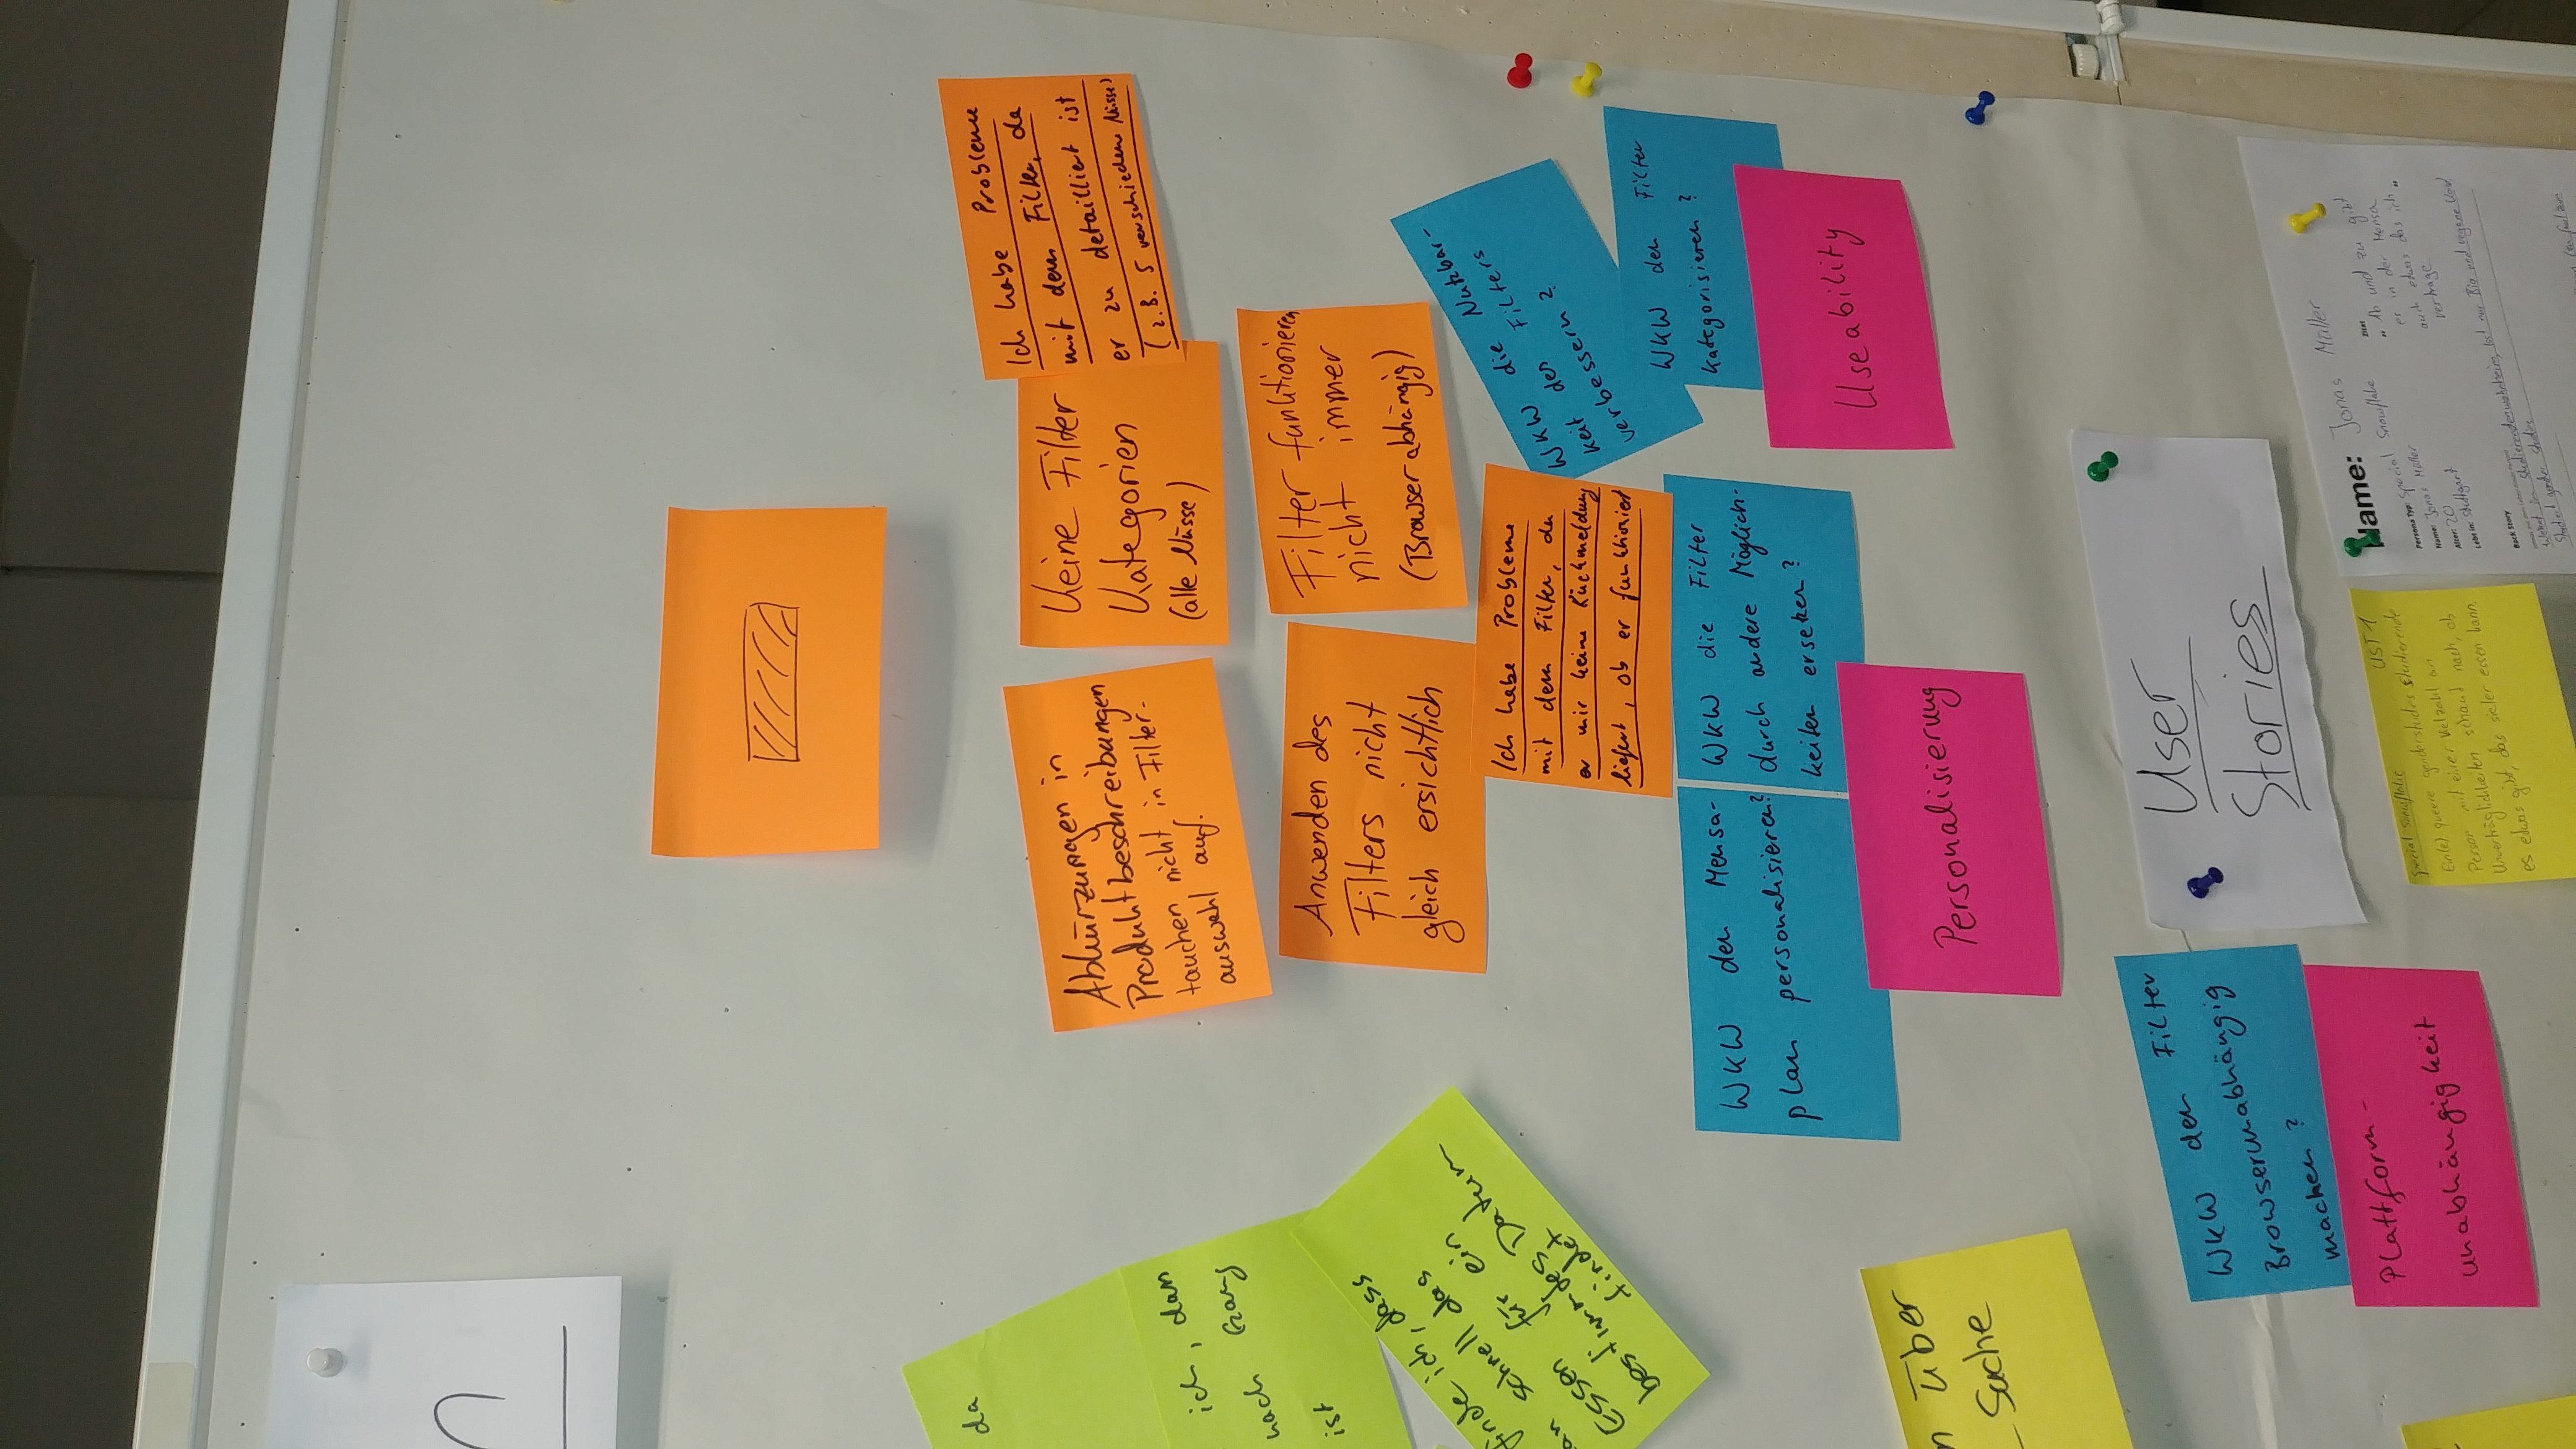 da
ich, dass
nach Gang
ist
finde ich, dass
schnell das
Essen für ein
bestimmdes Datum
findet
Abkürzungen in
Produktbeschreibungen
tauchen nicht in Filter-
auswahl auf.
Keine Filter
Kategorien
(alle Nüsse)
Ich habe Probleme
mit dem Filter, da
er zu detailliert ist
(z.B. 5 verschiedene Nüsse)
Anwenden des
Filters nicht
gleich ersichtlich
Filter funktionieren
nicht immer
(Browser abhängig)
Ich habe Probleme
mit dem Filter, da
er mir keine Rückmeldung
liefert, ob er funktioniert
WKW die Nutzbar-
keit des Filters
verbessern?
WKW den Filter
kategorisieren?
WKW den Mensa-
plan personalisieren?
WKW die Filter
durch andere Möglich-
keiten ersetzen?
Useability
Personalisierung
über
Suche
WKW den Filter
Browserunabhängig
machen?
Plattform-
unabhängigkeit
User
Stories
UST1
Special Snowflake
Ein(e) queere genderstudies Studierende
Person mit einer Vielzahl an
Unverträglichkeiten schaut nach, ob
es etwas gibt, das sie/er essen kann.
Name: Jonas Müller
Persona Typ: Special Snowflake
Name: Jonas Müller
Alter: 20
Lebt in: Stuttgart
Zitat
„Ab und zu gibt
es in der Mensa
auch etwas das ich
vertrage“
Back Story
Wohnt im Studierendenwohnheim, isst nur Bio und vegane Kost,
Studiert gender Studies